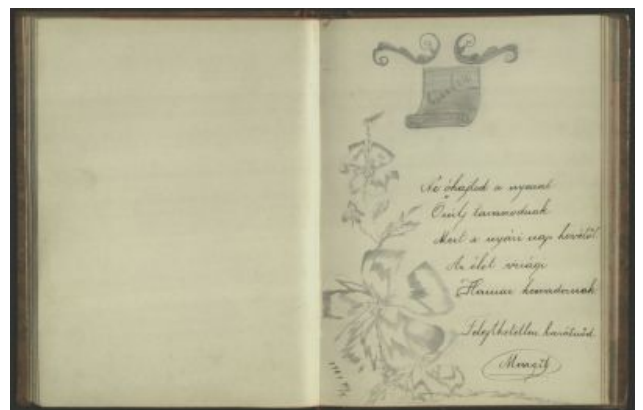 Ne óhajtsd a nyarat
Örülj tavaszodnak
Mert a nyári nap hevétől
Az élet virági
Hamar
Felejthetetlen barátnőd
Margit